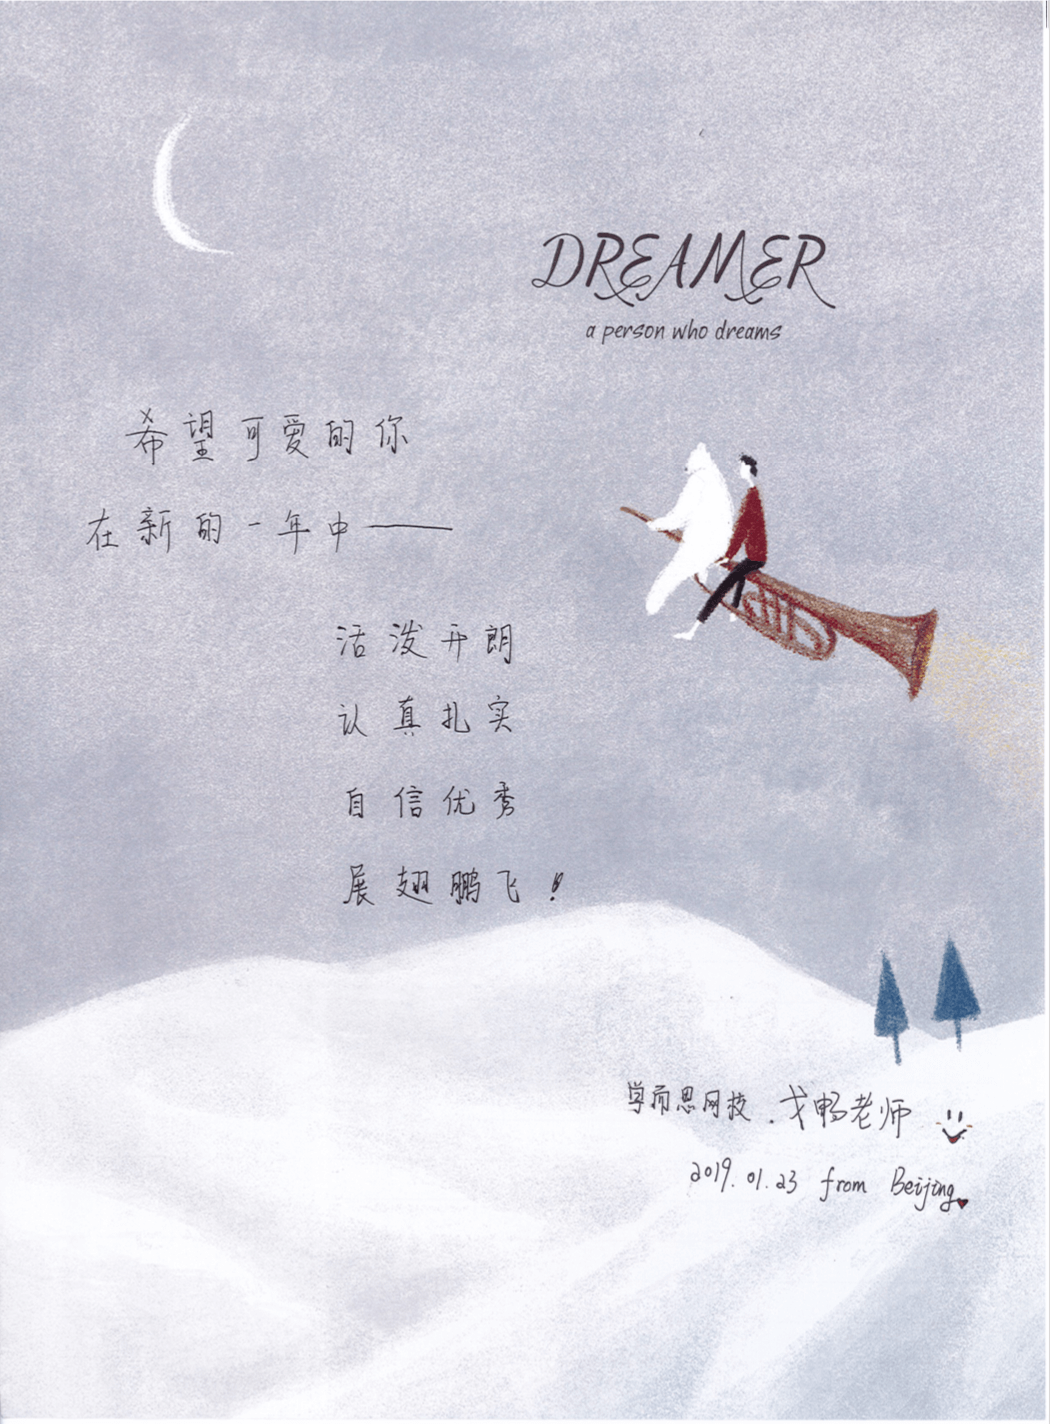 DREAMER
a person who dreams
希望可爱的你
在新的一年中——
活泼开朗
认真扎实
自信优秀
展翅鹏飞！
学而思网校.戈畅老师
2019.01.23 from Beijing